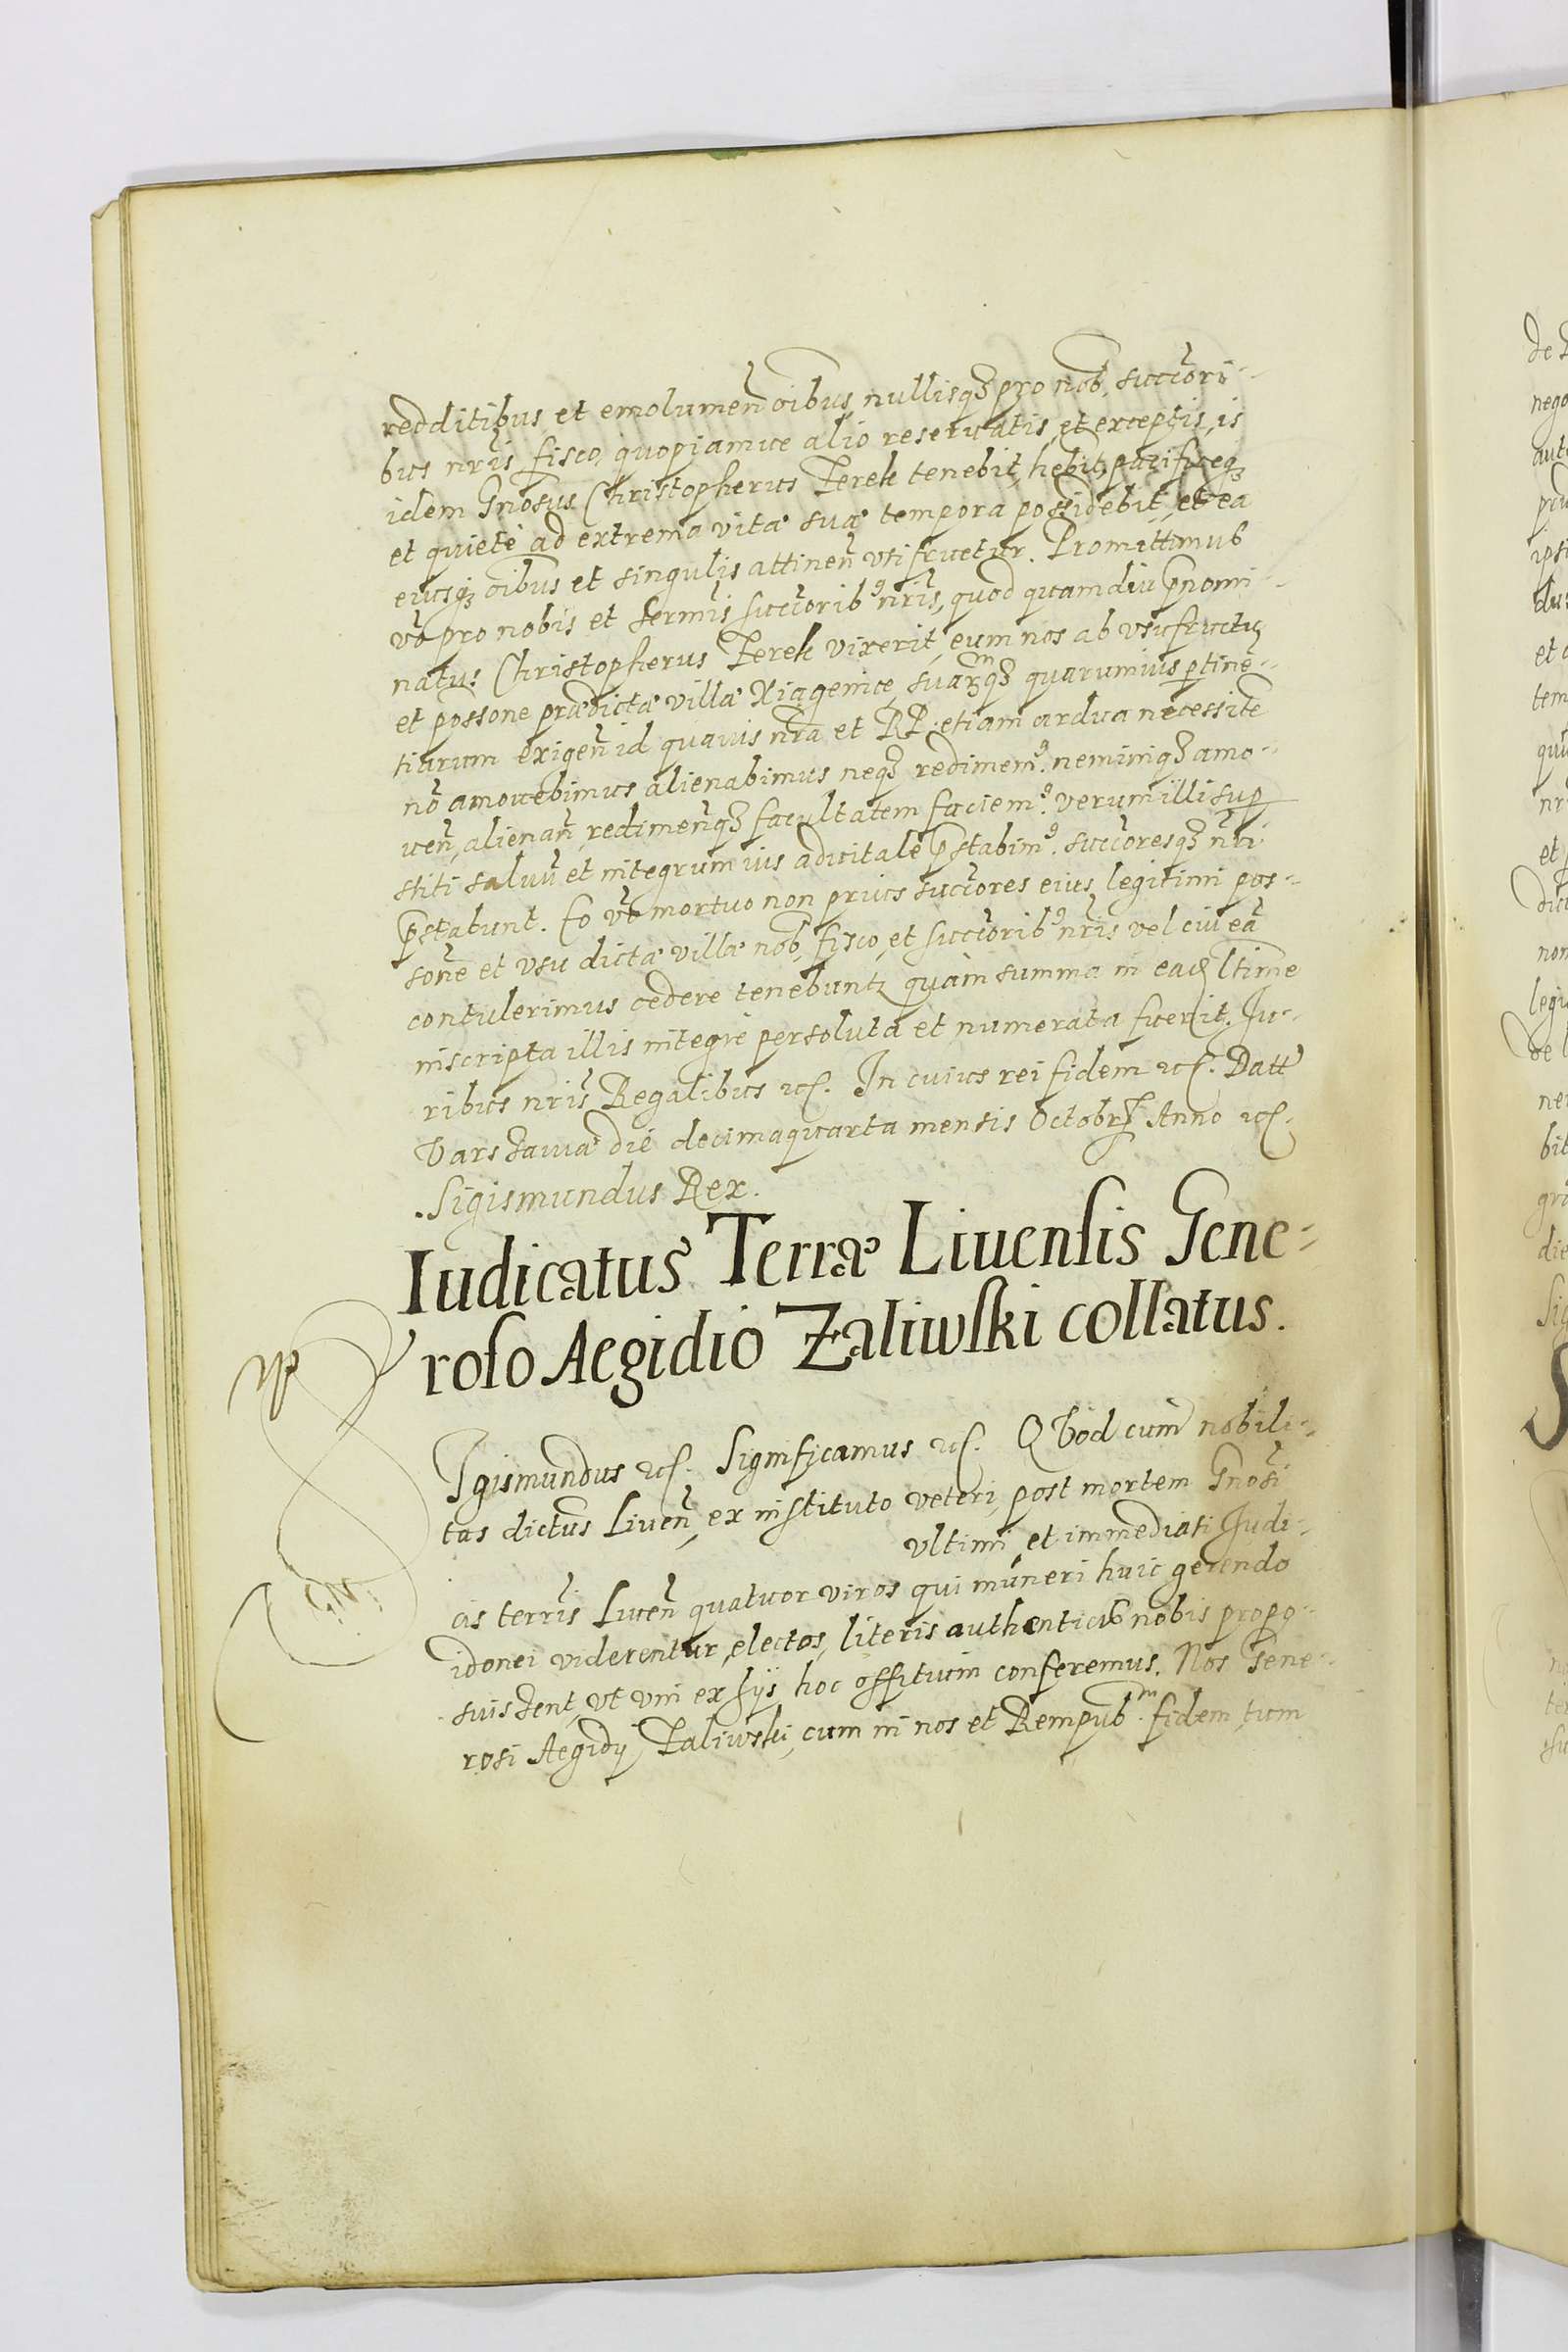 redditibus et emolumen̄ oībus, nullisqȝ pro nob, succ̄ori-
bus nr̄is fisco, quopiamue alio reseruatis, et exceptis, is
idem Gnōsus Christopherus Zerek tenebit, hēbit, pacificeqȝ
et quiete ad extrema vitæ suæ tempora possidebit, et ea
eiusqȝ oībus et singulis attinen̄ vti fruetur. Promittimus
vō pro nobis et Serm̄is succ̄oribꝰ nr̄is, quod quamdiu p̄nomi-
natus Christopherus Zerek vixerit, eum nos ab vsufructu
et possone prædictæ villæ Xiagenice, suarūqȝ quarumuis ptinē-
tiarum exigen̄ id quauis nr̄a et RP. etiam ardua necessite
nō amouebimus alienabimus neqȝ redimemꝰ. neminiqȝ amo-
uen̄, alienan̄, redimen̄qȝ facultatem faciemꝰ. verum illi sup
stiti saluū et integrum ius aduitale p̄stabimꝰ. succ̄oresqȝ nr̄i
p̄stabunt. Eo vō mortuo non prius succ̄ores eius legitimi pos-
sone et vsu dictæ villæ nob, fisco, et succ̄oribꝰ nr̄is vel cui eā
contulerimus cedere tenebuntꝛ quàm summa in ea ltime
inscripta illis integrè persoluta et numerata fuerit. Iu-
ribus nr̄is Regalibus ꝛc̄. In cuius rei fidem ꝛc̄. Datt
Varsʒauiæ die decimaquarta mensis Octobr̄ Anno ꝛc̄.
Sigismundus Rex.
Iudicatus Terræ Liuensis Gene-
roso Aegidio Zaliwski collatus.
SIgismundus ꝛc̄. Significamus ꝛc̄. QVod cum nobili-
tas dictus Liuen̄, ex instituto veteri, post mortem Gnōsi
vltimi, et immediati Iudi-
cis terr̄is Liuen̄ quatuor viros qui muneri huic gerendo
idonei viderentur, electos, literis authenticis nobis propo-
suissent, vt vni ex hijs hoc offitium conferemus. Nos Gene-
rosi Aegidij Zaliwski, cum in nos et Rempub.ᵐ fidem, tum